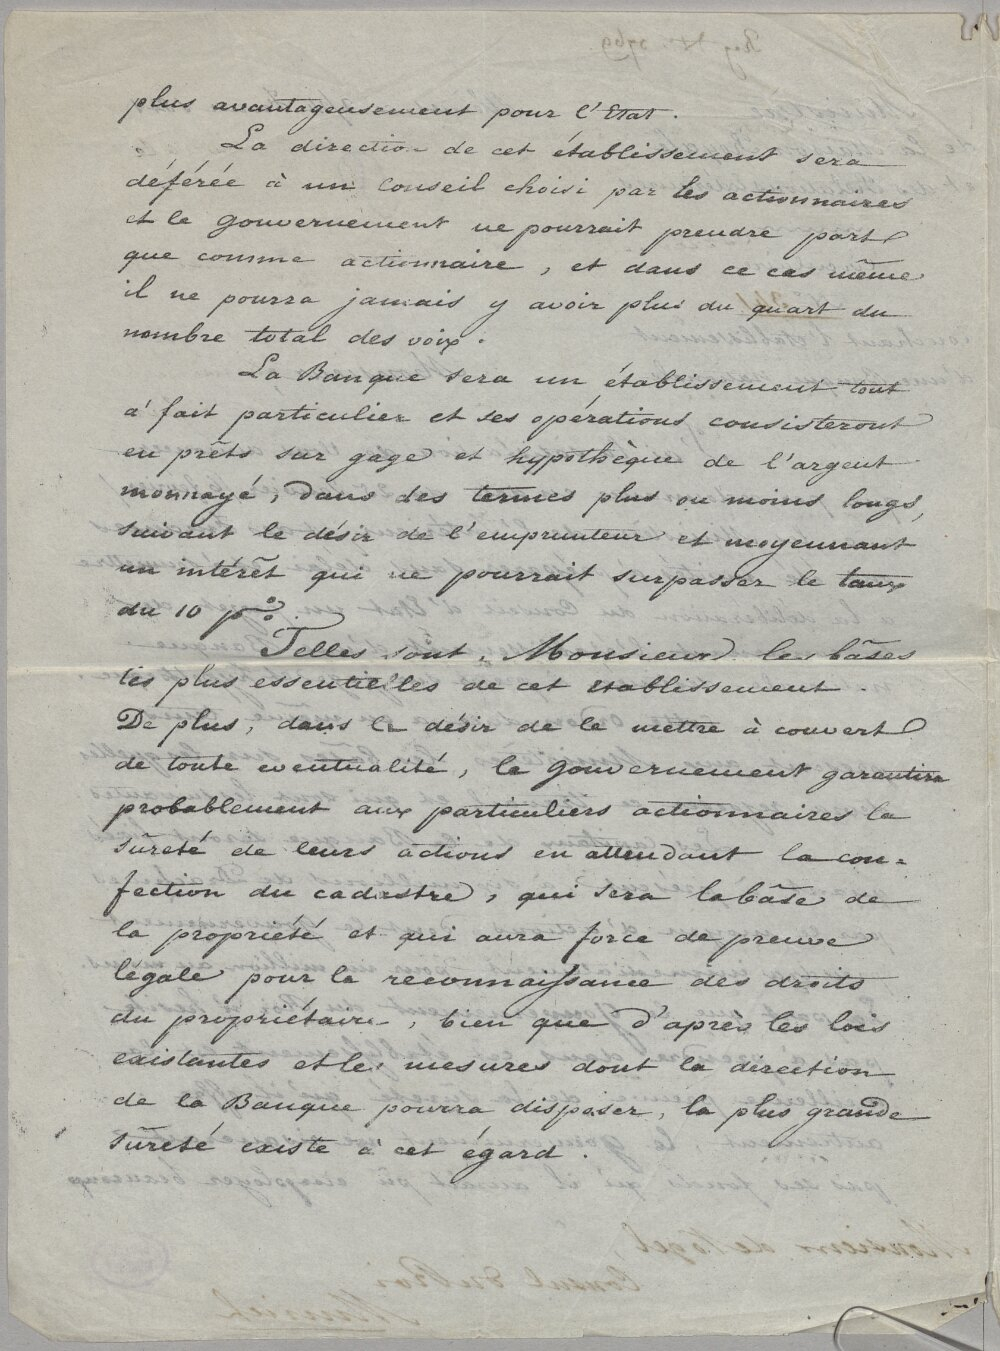 plus avantageusement pour l'Etat.
La direction de cet établissement sera
déférée à un Conseil choisi par les actionnaires
et le Gouvernement ne pourrait prendre part
que comme actionnaire, et dans ce cas même
il ne pourra jamais y avoir plus du quart du
nombre total des voix.
La Banque sera un établissement tout
à fait particulier et ses opérations consisteront
en prêts sur gage et hypothèque de l'argent
monnayé, dans des termes plus ou moins longs,
suivant le désir de l'emprunteur et moyennant
un intérêt qui ne pourrait surpasser le taux
du 10 p%.
Telles sont, Monsieur les bâses
les plus essentielles de cet etablissement.
De plus, dans le désir de le mettre à couvert
de toute eventualité, le Gouvernement garantira
probablement aux particuliers actionnaires la
sûreté de leurs actions en attendant la con-
fection du cadastre, qui sera la bâse de
la propriété et qui aura force de preuve
légale pour la reconnaissance des droits
du propriétaire, bien que d'après les lois
existantes et les mesures dont la direction
de la Banque pourra disposer, la plus grande
sûreté existe à cet égard.
Monsieur de
Consul du Roi
Munich